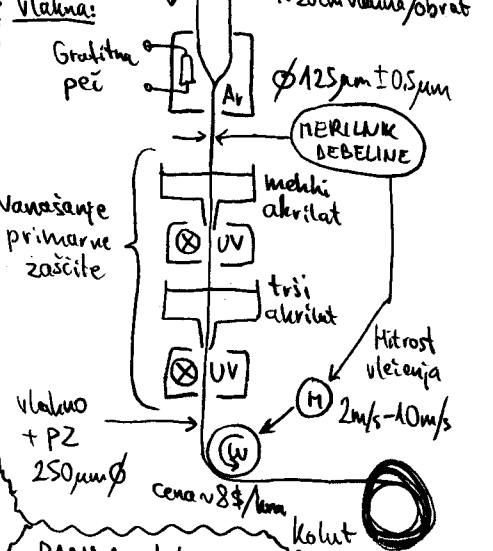 Vlakna:
vlakna/obrat
Grafitna
peč
Ar
Ø125μm±0,5μm
MERILNIK
DEBELINE
Nanašanje
primarne
zaščite
mehki
akrilat
UV
trši
akrilat
UV
Hitrost
vlečenja
M
2m/s-10m/s
vlakno
+ PZ
250μmØ
ω
cena~8$/km
Kolut